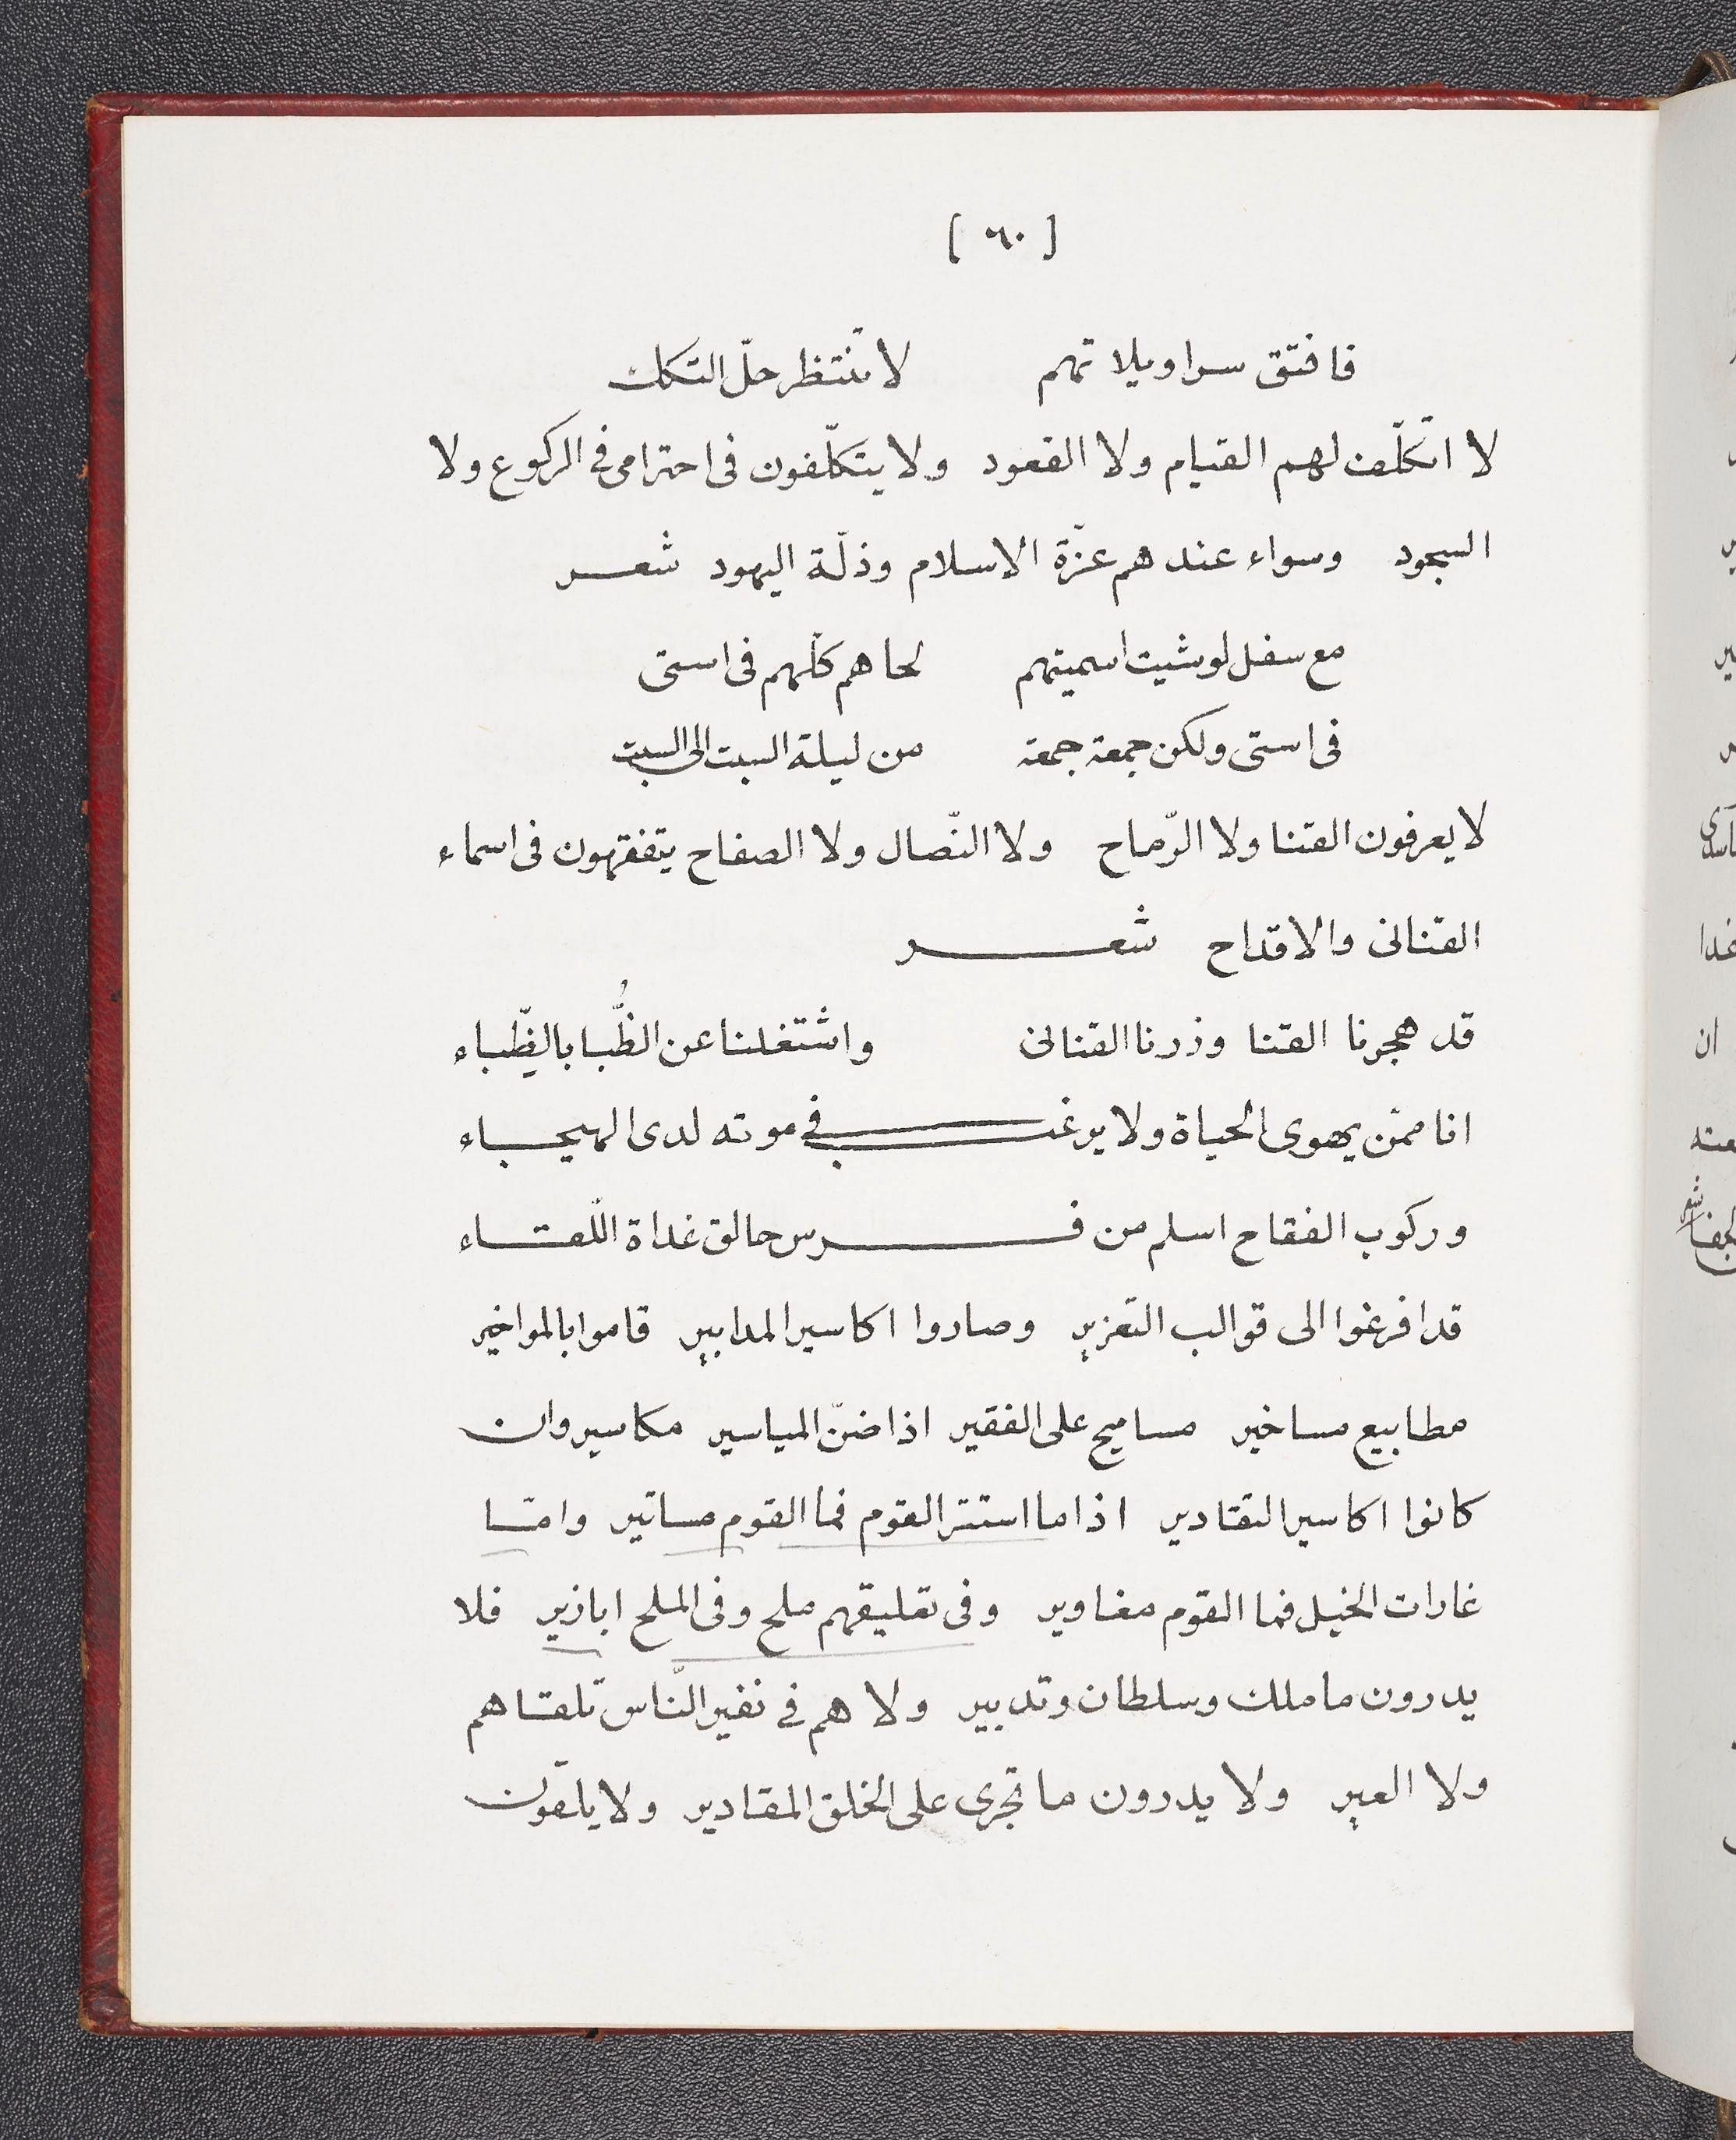 [ ٦٠ ]
فافتق سراويلاتهم لا تنتظر حلّ التكك
لا اتكلّف لهم القيام ولا القعود ولا يتكلّفون فى احترامى فى الركوع ولا
السجود وسواء عندهم عزّة الاسلام وذلّة اليهود شعر
مع سفل لو شيت اسميتهم لحاهم كلّهم فى استى
فى استى ولكن جمعة جمعة من ليلة السبت الى السبت
لا يعرفون القنا ولا الرّماح ولا النّصال ولا الصفاح يتفقهون فى اسماء
القنانى والاقداح شعر
قد هجرنا القنا وزرنا القنانى واشتغلنا عن الظُّبا بالظِّباء
انا ممّن يهوى الحياة ولا يرغب فى موته لدى الهيجاء
وركوب الفقاح اسلم من فرس حالق غداة اللّقاء
قد افرغوا الى قوالب التعزير وصاروا اكاسير المدابير قاموا بالمواخير
مطابيع مساخير مساميح على الفقير اذا ضنّ المياسير مكاسير وان
كانوا اكاسير التقادير اذا ما استتر القوم فما القوم مساتير وامّا
غارات الخيل فما القوم مغاوير وفى تعليقهم ملح وفى الملح ابازير فلا
يدرون ما ملك وسلطان وتدبير ولا هم فى نفير النّاس تلقاهم
ولا العير ولا يدرون ما تجرى على الخلق المقادير ولا يلقون